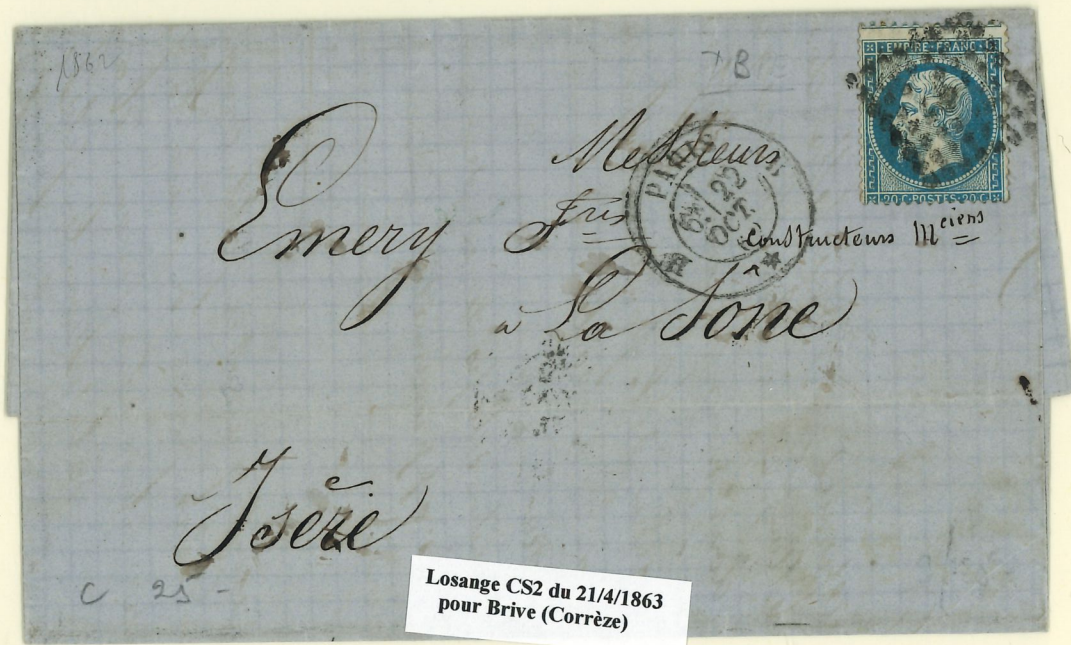 1862
B
EMPIRE FRANC
20 C POSTES 20 C
PARIS
22
OCT
Messieurs
Emery Fres
constructeurs Mciens
à La Sône
Isère
C 25 -
Losange CS2 du 21/4/1863
pour Brive (Corrèze)